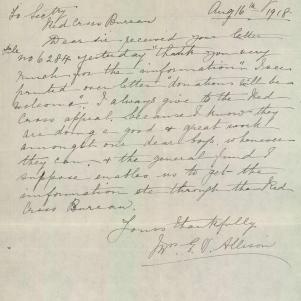 Aug 16th 1918.
To Secty
Red Cross Bureau
Dear sir received your letter
File no 6284 yesterday "thank you very
much for the information". I see
printed over letter "donations will be
welcome". I always give to the Red
Cross appeal, because I know they
are doing a good & great work
amongst our dear boys, whenever
they can. & the general fund I
suppose enables us to get the
information etc through the Red
Cross Bureau.
Yours thankfully
Mrs G. Allison